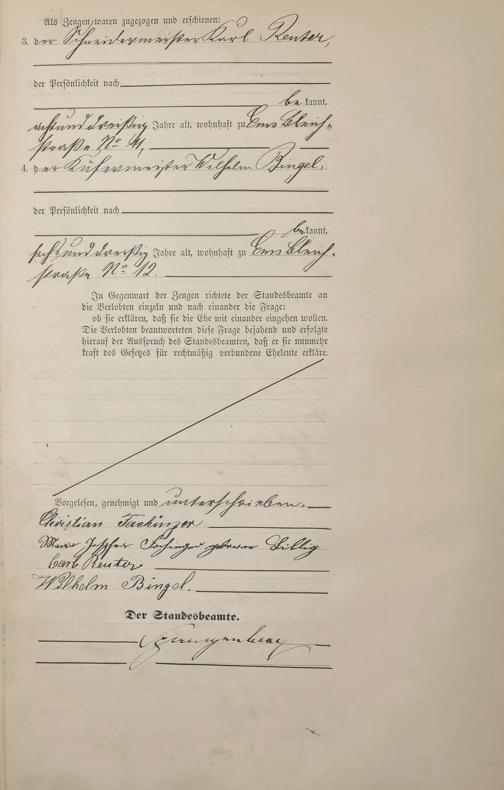 Als Zeugen waren zugezogen und erschienen:
3. der Schneidermeister Karl Reuter,
der Persönlichkeit nach
be kannt,
achtunddreißig Jahre alt, wohnhaft zu Ems Bleich-
straße No 11,
4. der Küfermeister Wilhelm Bingel,
der Persönlichkeit nach
be kannt,
sechsunddreißig Jahre alt, wohnhaft zu Ems Bleich-
straße No 12.
In Gegenwart der Zeugen richtete der Standesbeamte an
die Verlobten einzeln und nach einander die Frage:
ob sie erklären, daß sie die Ehe mit einander eingehen wollen.
Die Verlobten beantworteten diese Frage bejahend und erfolgte
hierauf der Ausspruch des Standesbeamten, daß er sie nunmehr
kraft des Gesetzes für rechtmäßig verbundene Eheleute erkläre.
Vorgelesen, genehmigt und unterschrieben.
Christian Fachinger
Fachinger geborene Billig
Carl Reuter
Wilhelm Bingel.
Der Standesbeamte.
Spangenberg